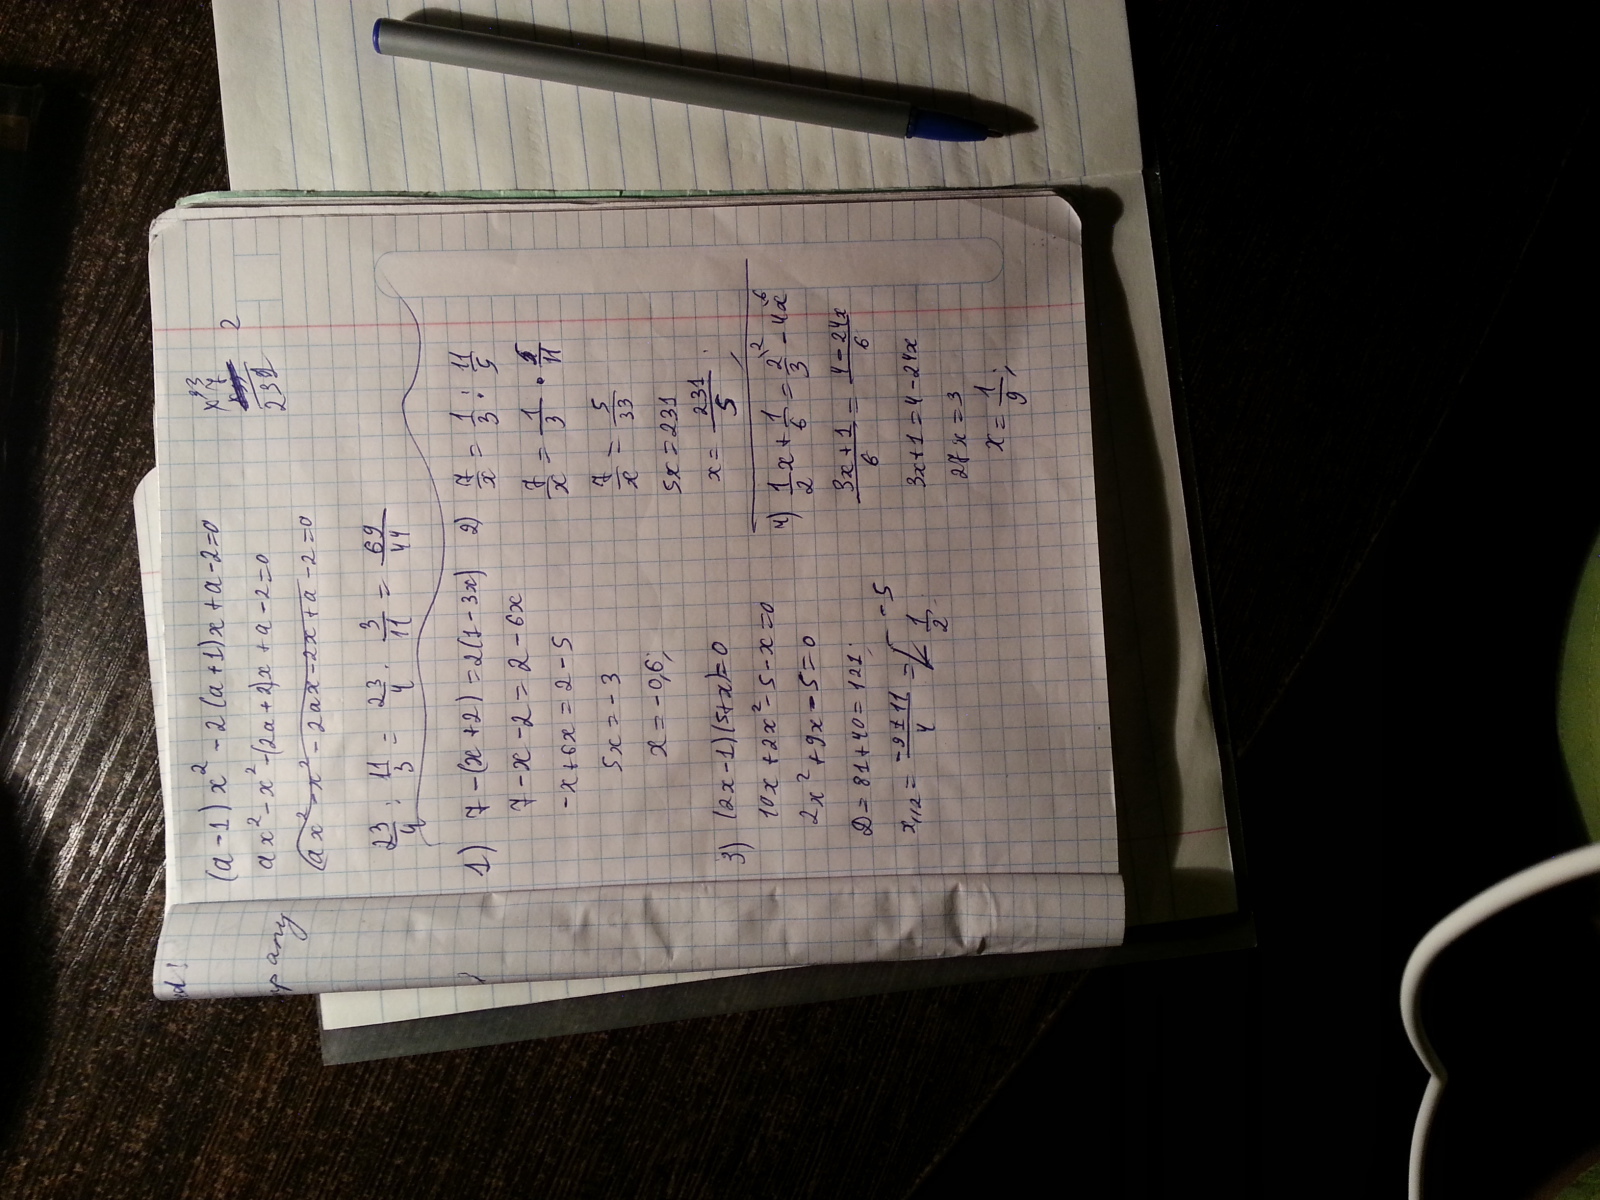 (a-1)x²-2(a+1)x+a-2=0
ax²-x²-(2a+2)x+a-2=0
ax²-x²-2ax-2x+a-2=0
23/4 : 11/3 = 23/4 · 3/11 = 69/44
x 33
7
231
2
1) 7-(x+2)=2(1-3x)
7-x-2=2-6x
-x+6x=2-5
5x=-3
x=-0,6;
2) 7/x = 1/3 : 11/5
7/x = 1/3 · 5/11
7/x = 5/33
5x=231
x= 231/5;
3) (2x-1)(5+x)=0
10x+2x²-5-x=0
2x²+9x-5=0
D=81+40=121;
x₁,₂= (-9±11)/4 = -5
1/2.
4) 1/2 x + 1/6 = 2/3 \2 - 4x \6
(3x+1)/6 = (4-24x)/6
3x+1=4-24x
27x=3
x= 1/9;